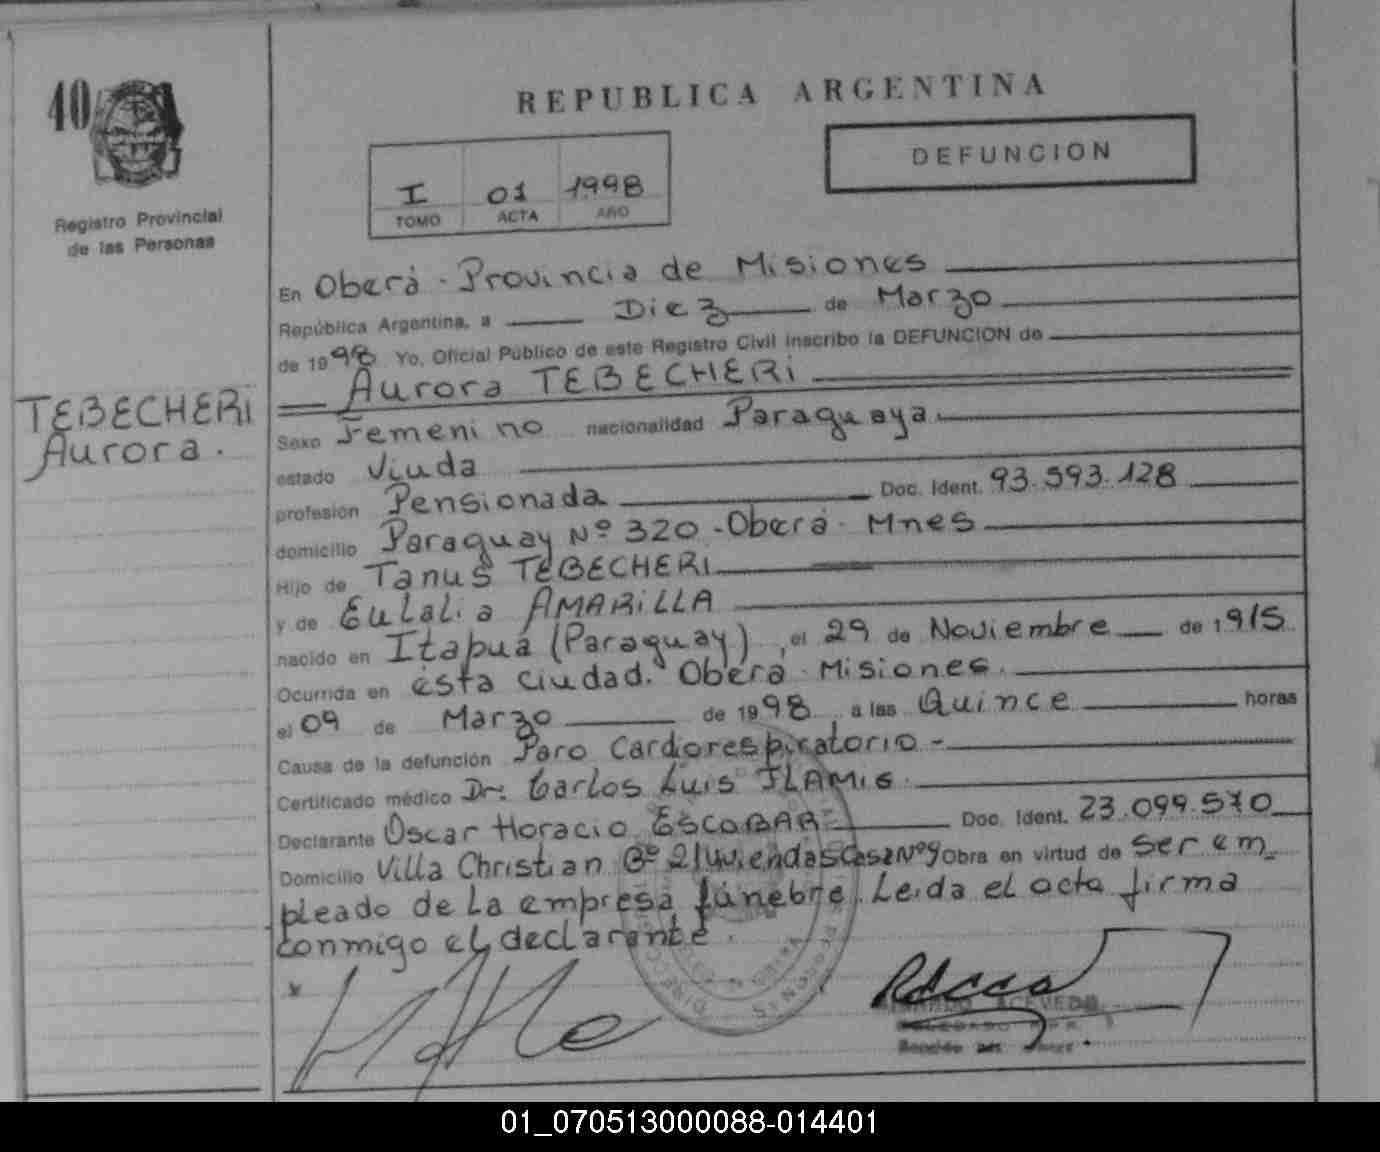 40
Registro Provincial
de las Personas
TEBECHERI
Aurora.
REPUBLICA ARGENTINA
I 01 1998
TOMO ACTA AÑO
DEFUNCION
En Oberá - Provincia de Misiones
República Argentina, a Diez de Marzo
de 1998 Yo, Oficial Público de este Registro Civil inscribo la DEFUNCION de
Aurora TEBECHERI
Sexo Femenino nacionalidad Paraguaya.
estado Viuda
profesión Pensionada Doc. Ident. 93.593.128
domicilio Paraguay Nº 320 - Oberá - Mnes
Hijo de Tanus TEBECHERI
y de Eulalia AMARILLA
nacido en Itapuá (Paraguay), el 29 de Noviembre de 1915
Ocurrida en ésta ciudad. Oberá - Misiones.
el 09 de Marzo de 1998 a las Quince horas
Causa de la defunción Paro Cardiorespiratorio -
Certificado médico Dr: Carlos Luis
Declarante Oscar Horacio ESCOBAR Doc. Ident. 23.099.570
Domicilio Villa Christian Bº 21 viviendas Casa Nº 9 Obra en virtud de ser em-
pleado de la empresa fúnebre. Leida el acta firma
conmigo el declarante.
ACEVEDO
01_070513000088-014401